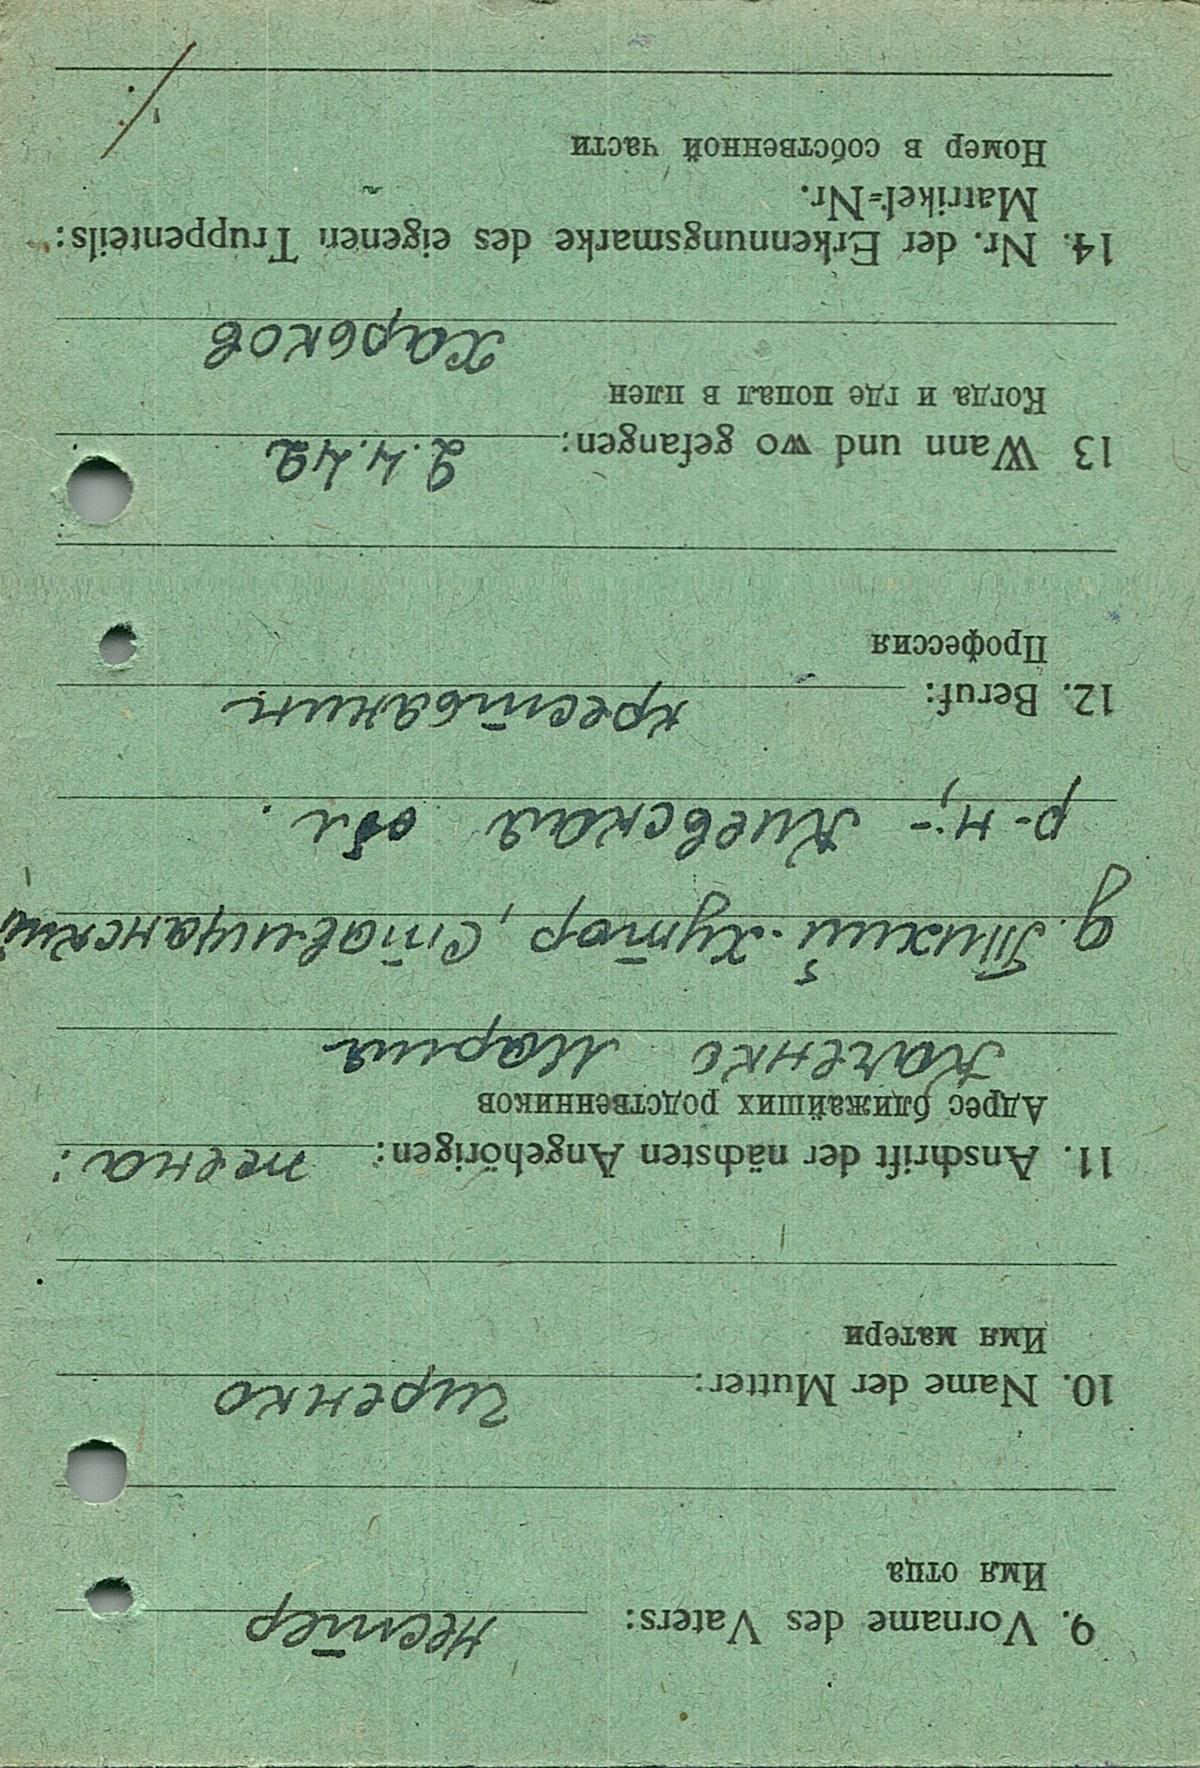 9. Vorname des Vaters: нестер
Имя отца
10. Name der Mutter: гиренко
Имя матери
11. Anschrift der nächsten Angehörigen: жена:
Адрес ближайших родственников
Каченко Мария
д. Тихий-Хутор, Ставищанский
р-н,- Киевская обл.
12. Beruf: крестьянин
Профессия
13 Wann und wo gefangen: 2.4.42
Когда и где попал в плен
Харьков
14. Nr. der Erkennungsmarke des eigenen Truppenteils:
Matrikel=Nr.
Номер в собственной части